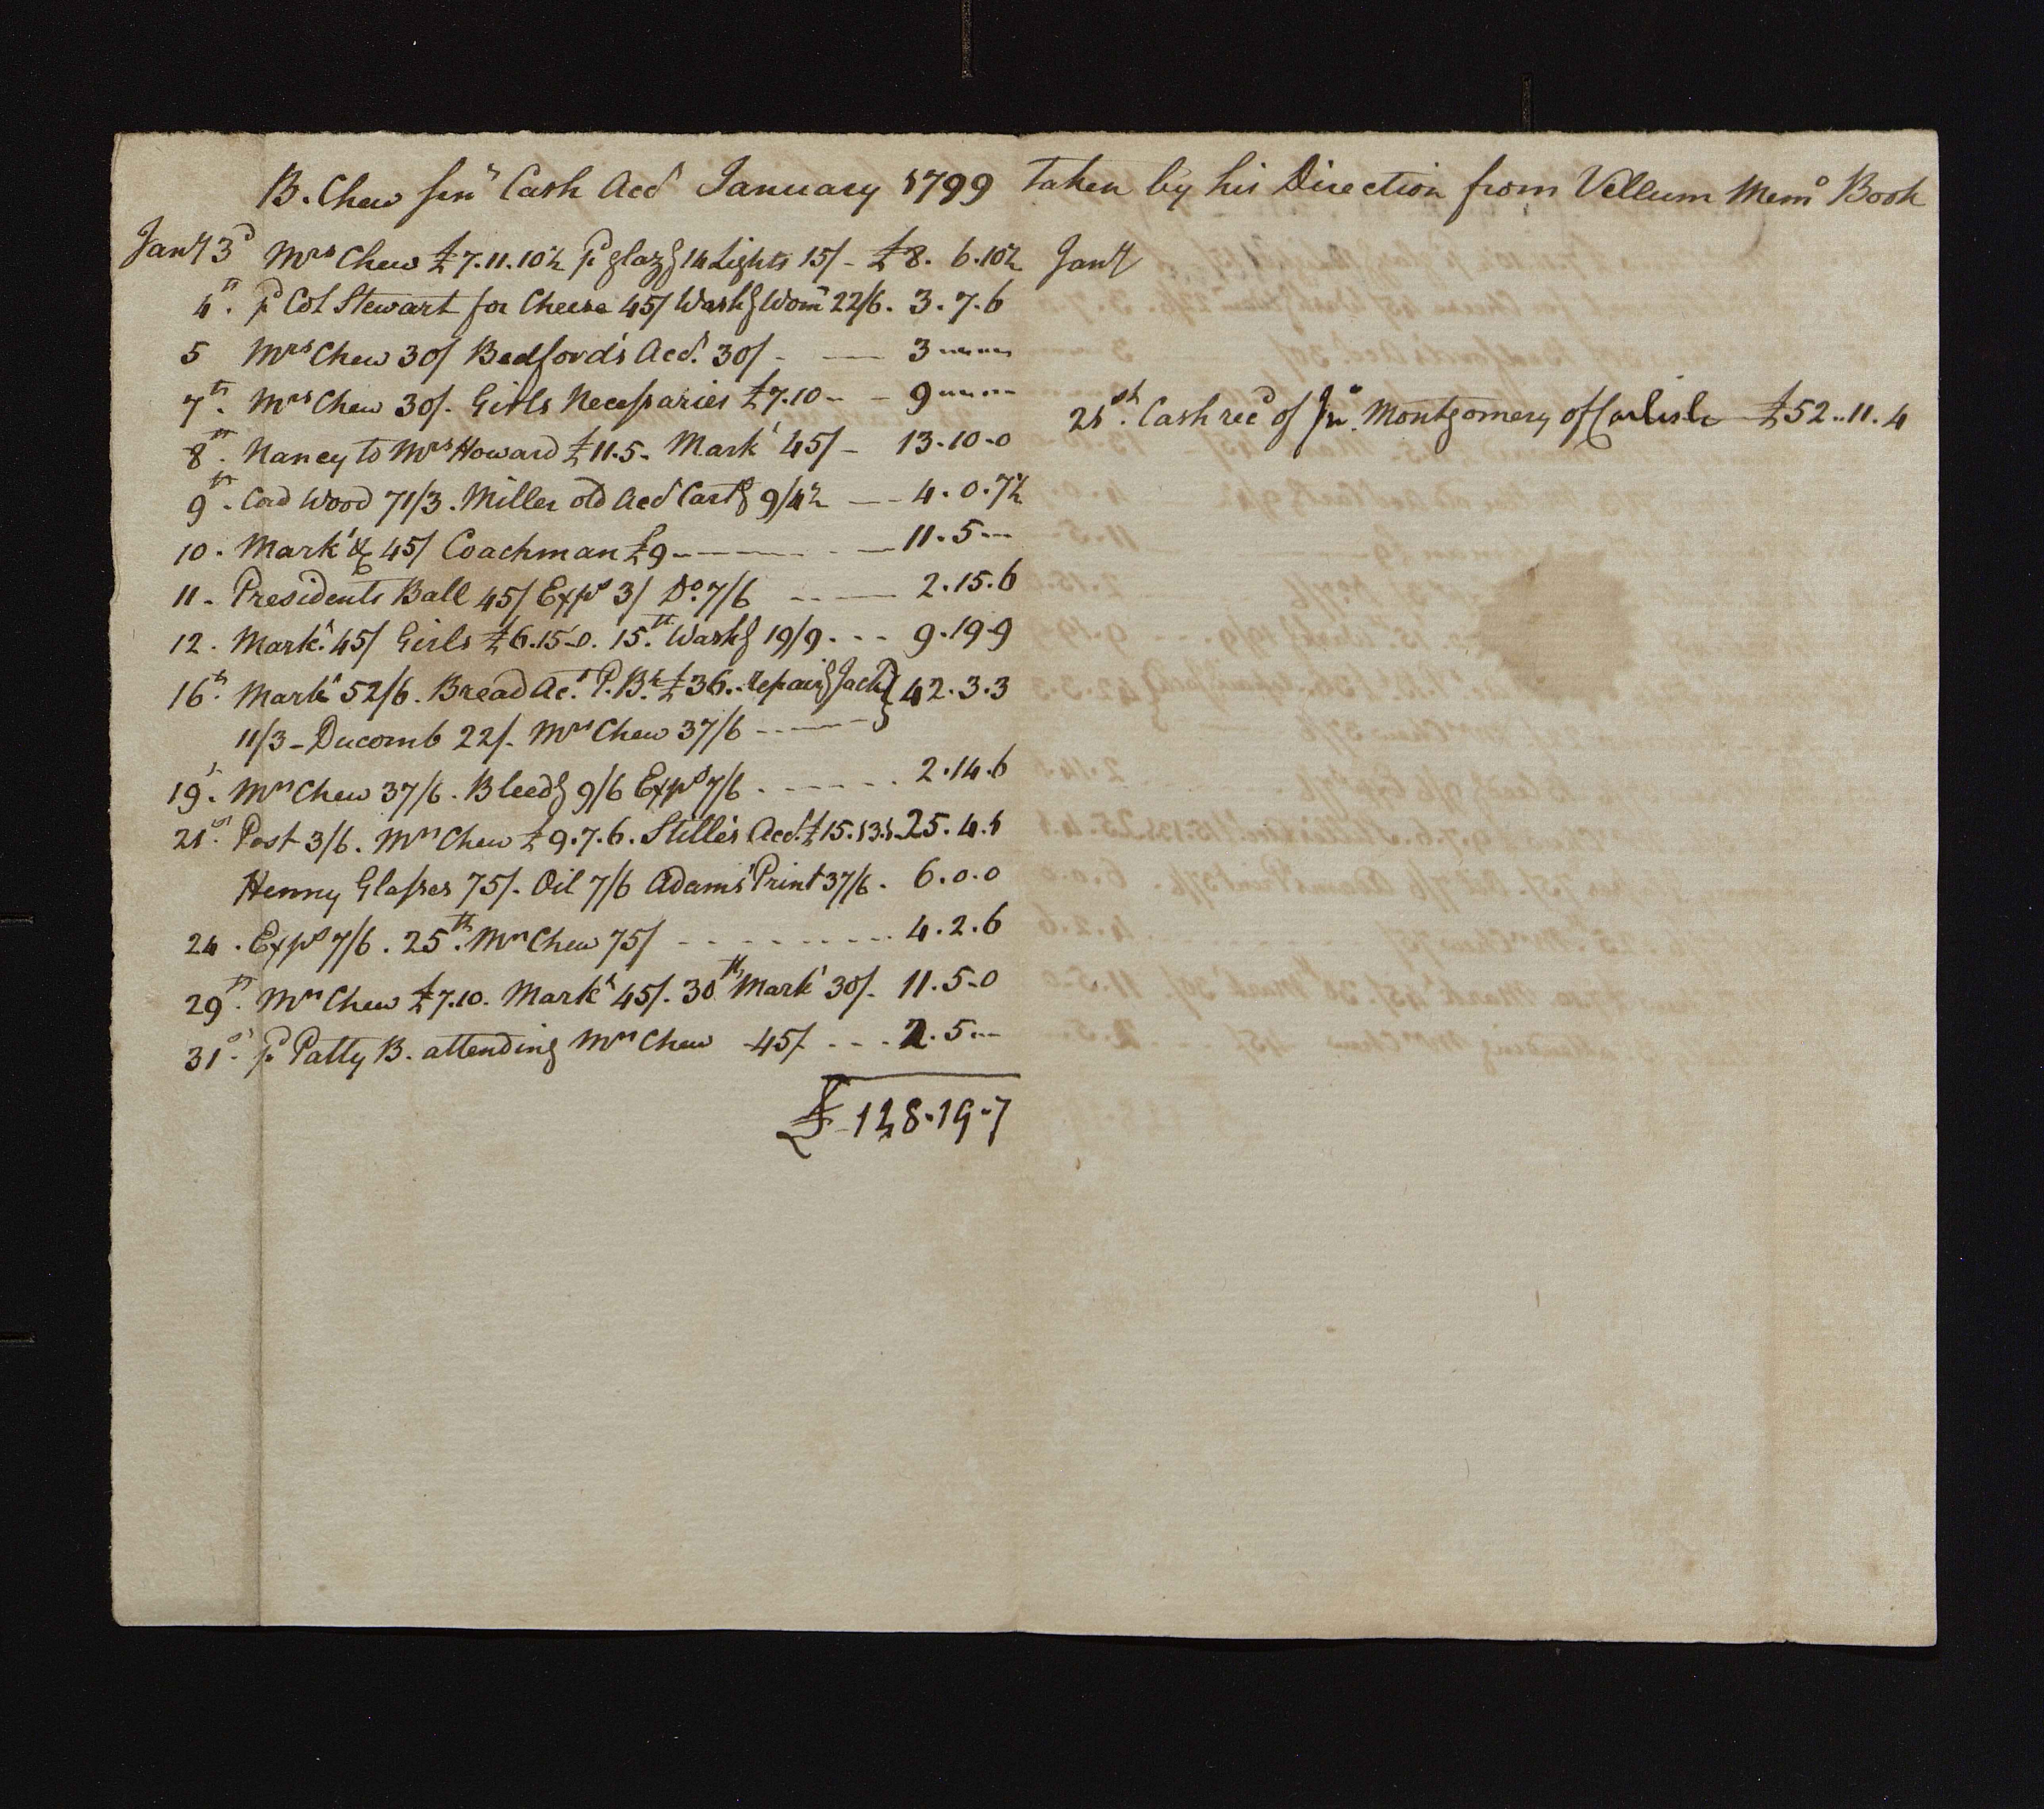 B. Chew Senr Cash Acct January 1799 taken by his Direction from Vellum Memo Book
Jany 3d Mrs Chew £7.11.10½ pd glazg 14 Lights 15/- £8. 6.10½
4th. pd Col Stewart for Cheese 45/ Washg Womn 22/6. 3.7.6
5 Mrs Chew 30/ Bedford's Acct. 30/- — 3 ------
7th. Mrs Chew 30/. Girls Necessaries £7.10 - - 9 ------
8th. Nancy to Mrs Howard £11.5- Markt 45/- 13.10-0
9th. Cord Wood 71/3. Miller old Acct Cartg 9/4½ — 4.0.7½
10. Markt & 45/ Coachman £9 ------ 11.5--
11. Presidents Ball 45/ Exps 3/ Do. 7/6 ---- 2.15.6
12. Markt. 45/ Girls £6.15-0. 15th Washg 19/9 --- 9.19-9
16th. Markt 52/6. Bread Act. P.Bk. £36.. repairg Jack } 42.3.3
11/3 - Ducomb 22/. Mrs Chew 37/6 ----- }
19th. Mrs Chew 37/6. Bleedg 9/6 Exps 7/6 ------ 2.14.6
21st. Post 3/6. Mrs Chew £9.7.6. Stille's Acct. £15.13.1 - 25.4.1
Henny Glasses 75/. Oil 7/6 Adams' Print 37/6. 6.0.0
24. Exps 7/6. 25th. Mrs Chew 75/ -------- 4.2.6
29th. Mrs Chew £7.10. Markt 45/. 30th Markt 30/. 11.5-0
31st. pd Patty B. attending Mrs Chew 45/. --- 2.5--
£ 148.19.7
Jany
21st. Cash recd of Jno. Montgomery of Carlisle — £52..11.4